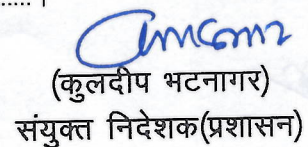 ..... ।
(कुलदीप भटनागर)
संयुक्त निदेशक(प्रशासन)